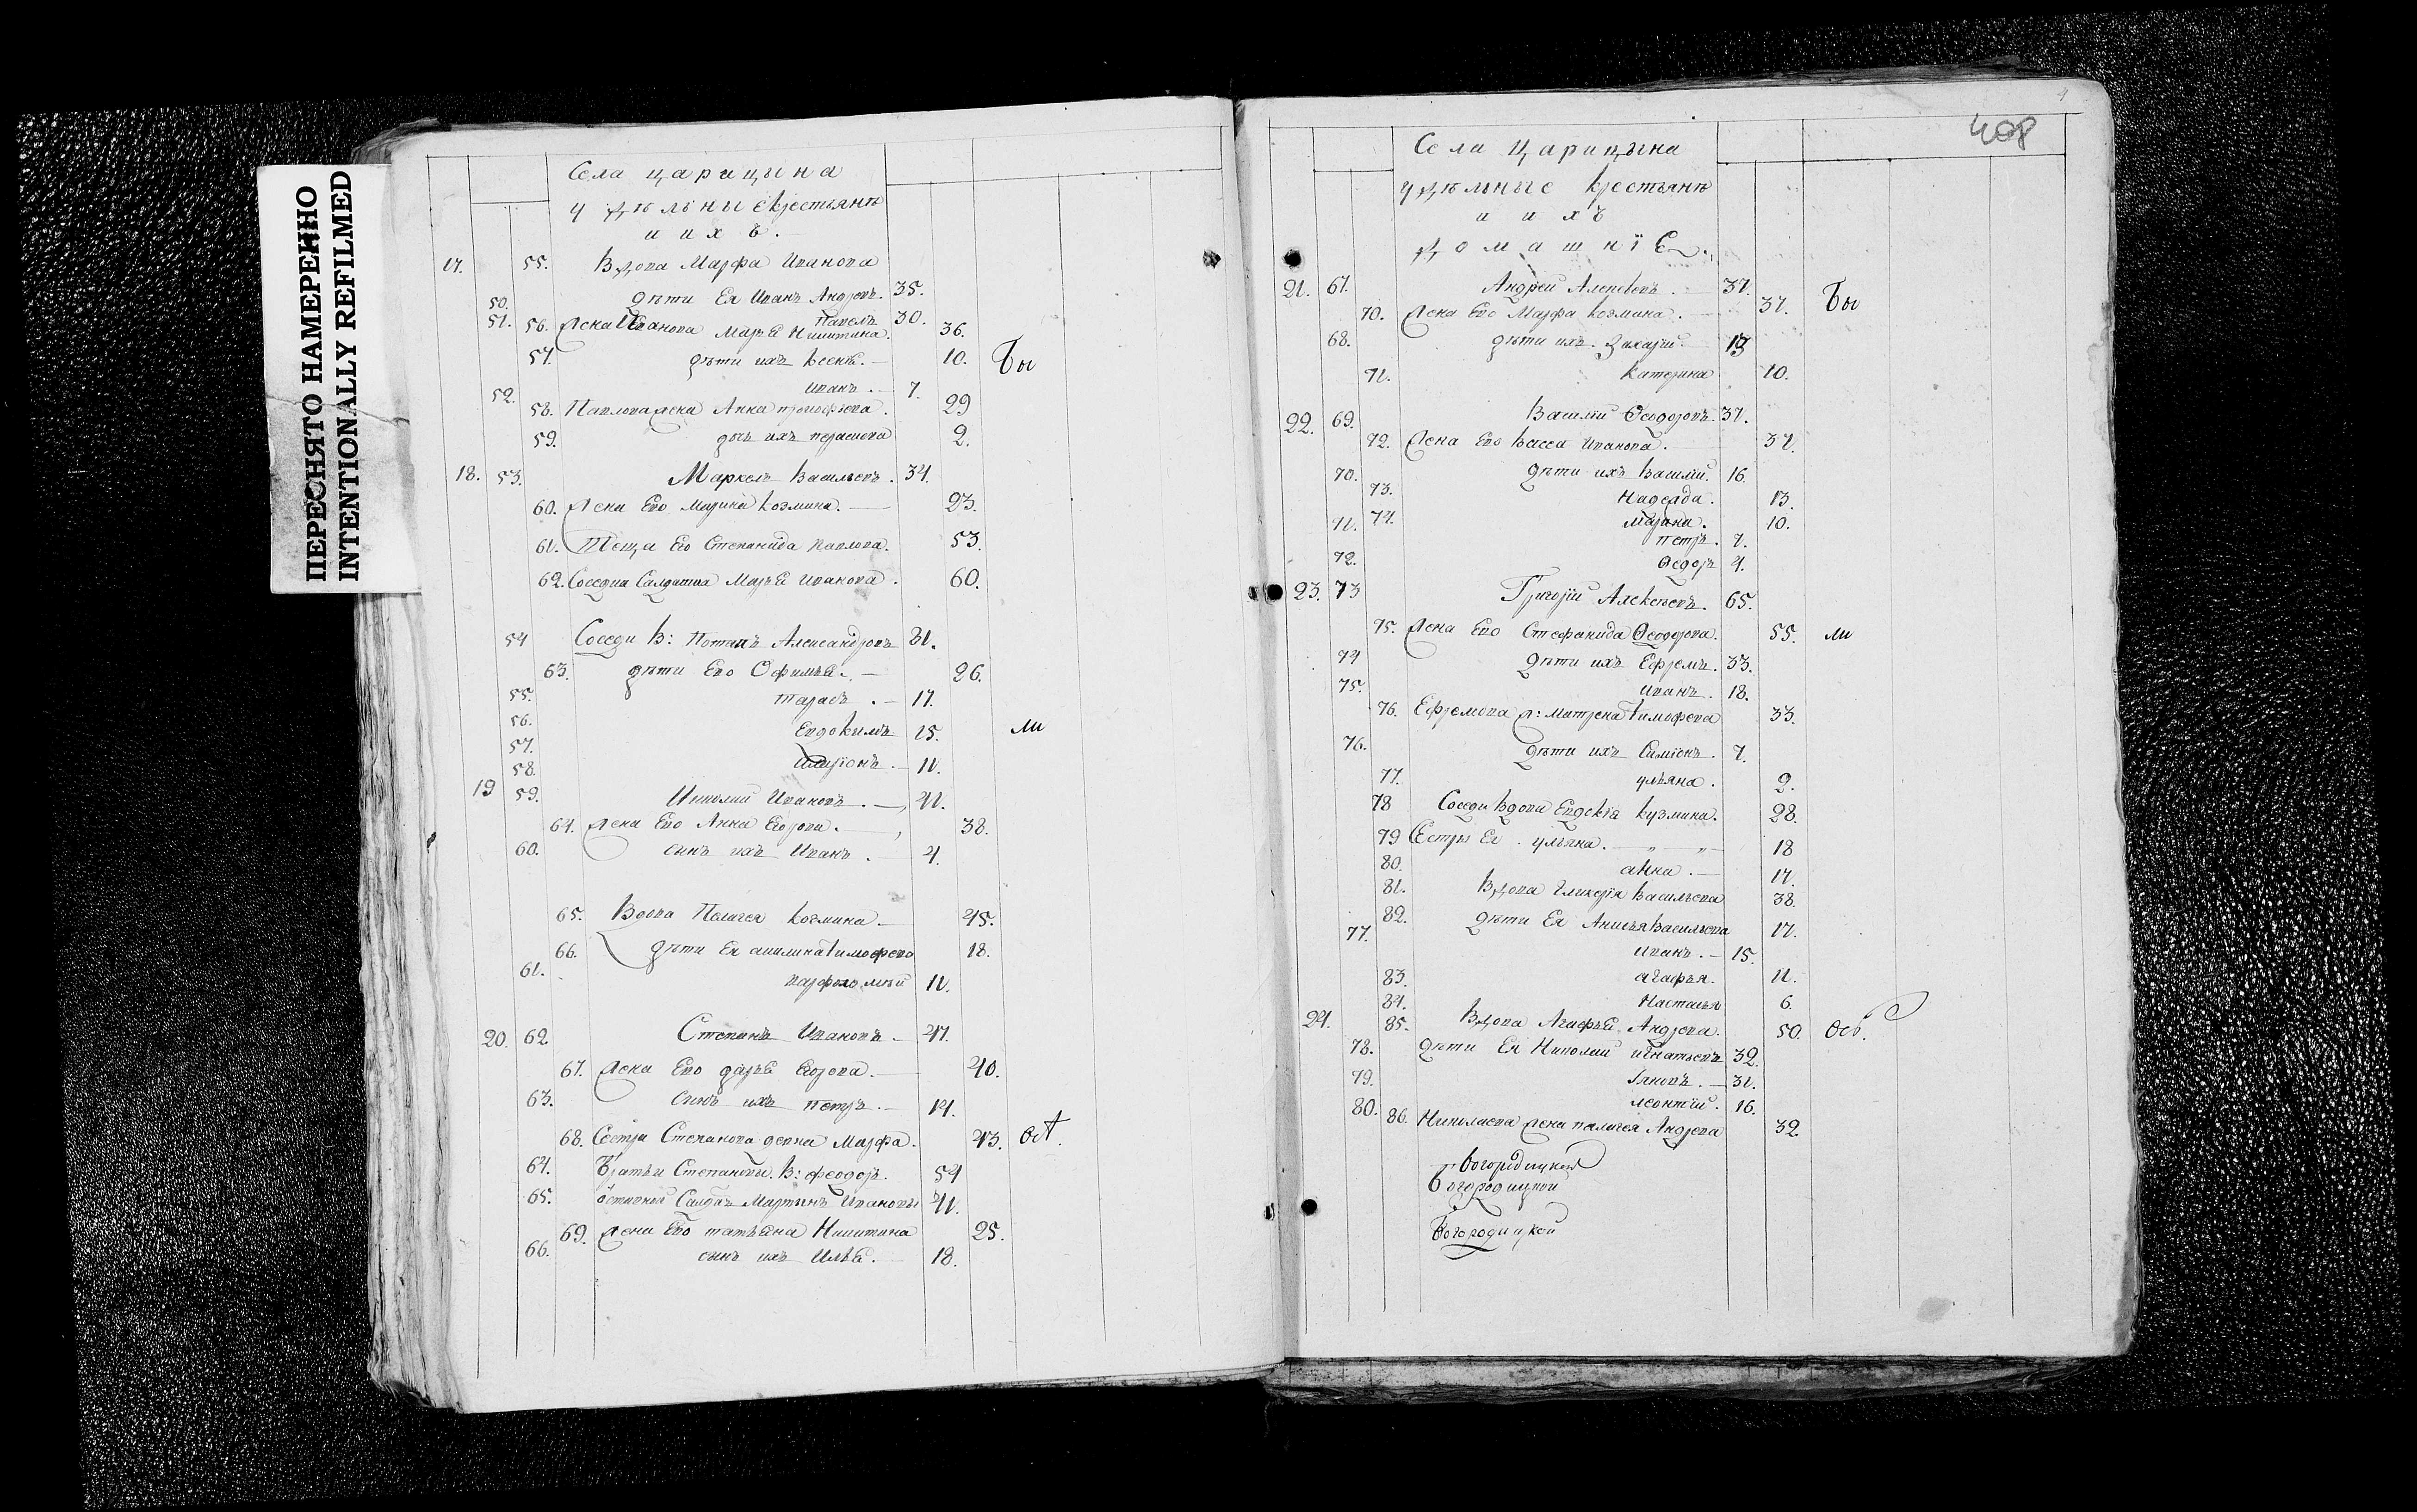 ПЕРЕСНЯТО НАМЕРЕННО
INTENTIONALLY REFILMED
Села царицина
удѣлныи крестьянѣ
и ихъ.
17. 55. Вдова Марфа Иванова
50. дѣти Ея Иванъ Андревъ. 35.
51. Павелъ 30.
56. Жена Иванова Марья Никитина. 36.
57. дѣти ихъ Ксенья. 10. бы
52. Иванъ. 7.
58. Павлова жена Анна 29
59. дочь ихъ 2.
18. 53. Маркелъ Васильевъ. 34.
60. Жена Его Марина Козмина. 23.
61. Теща Его Степанида Павлова. 53.
62. Соседка Салдатка Марья Иванова. 60.
54 Соседи В: Потапъ Александровъ 61.
63. дѣти Его Офимья. 26.
55. Тарасъ. 17.
56. Евдокимъ 15. ли
57.
58. 11.
19 59. Николай Ивановъ. 41.
64. Жена Его Анна Егорова. 38.
60. сынъ ихъ Иванъ. 4.
65. Вдова Пелагея Козмина. 45.
66. дѣти Ея акилина Тимофева 18.
61. варфоломѣй 11.
20. 62 Степанъ Ивановъ. 47.
67. Жена Его дарья Егорова. 40.
63. сынъ ихъ петръ. 14.
68. Сестра Степанова девка Марфа. 43. ост.
64. Братьи Степановы. В: феодоръ. 54
65. Салдатъ Мартынъ Ивановы 41.
69. Жена Его татьяна Никитина 25.
66. сынъ ихъ Илья. 18.
4
408
Села Царицына
удѣльные крестьянѣ
и ихъ
домашнїе.
21. 67. Андрей Алексѣевъ. 37.
70. Жена Его Марфа Козмина. 37. бы
68. дѣти ихъ. Захарїй. 13
71. Катерина 10.
22. 69. Василїй Ѳеодоровъ. 37.
72. Жена Его Васса Иванова. 37.
70. дѣти ихъ Василїй. 16.
73. Надежда. 13.
74. Марина. 10.
71. петръ. 7.
72. Ѳедоръ 4.
23. 73 Григорїй Алексѣевъ. 65.
75. Жена Его Стефанида Ѳеодорова. 55. ли
74 дѣти ихъ Ефремъ. 33.
75. иванъ. 18.
76. Ефремова ж: Матрена Тимофева 33.
76. дѣти ихъ Симїонъ. 7.
77. ульяна. 2.
78 Соседи вдова Евдокїя Кузмина. 28.
79 Сестры Ея. ульяна. „ „ 18
80. анна. 17.
81. Вдова Гликерїя Васильева 38.
82. дѣти Ея Анисья Васильева 17.
77. иванъ. 15.
83. агафья. 11.
84. Настасья 6.
24. 85. Вдова Агафья Андрева. 50. Ост.
78. дѣти Ея Николай игнатьевъ 32.
79. Іяковъ. 31.
80. леонтїй. 16.
86. Николаева жена пелагея Андрева 32.
Богородицкой
Богородицкой
Богородицкой